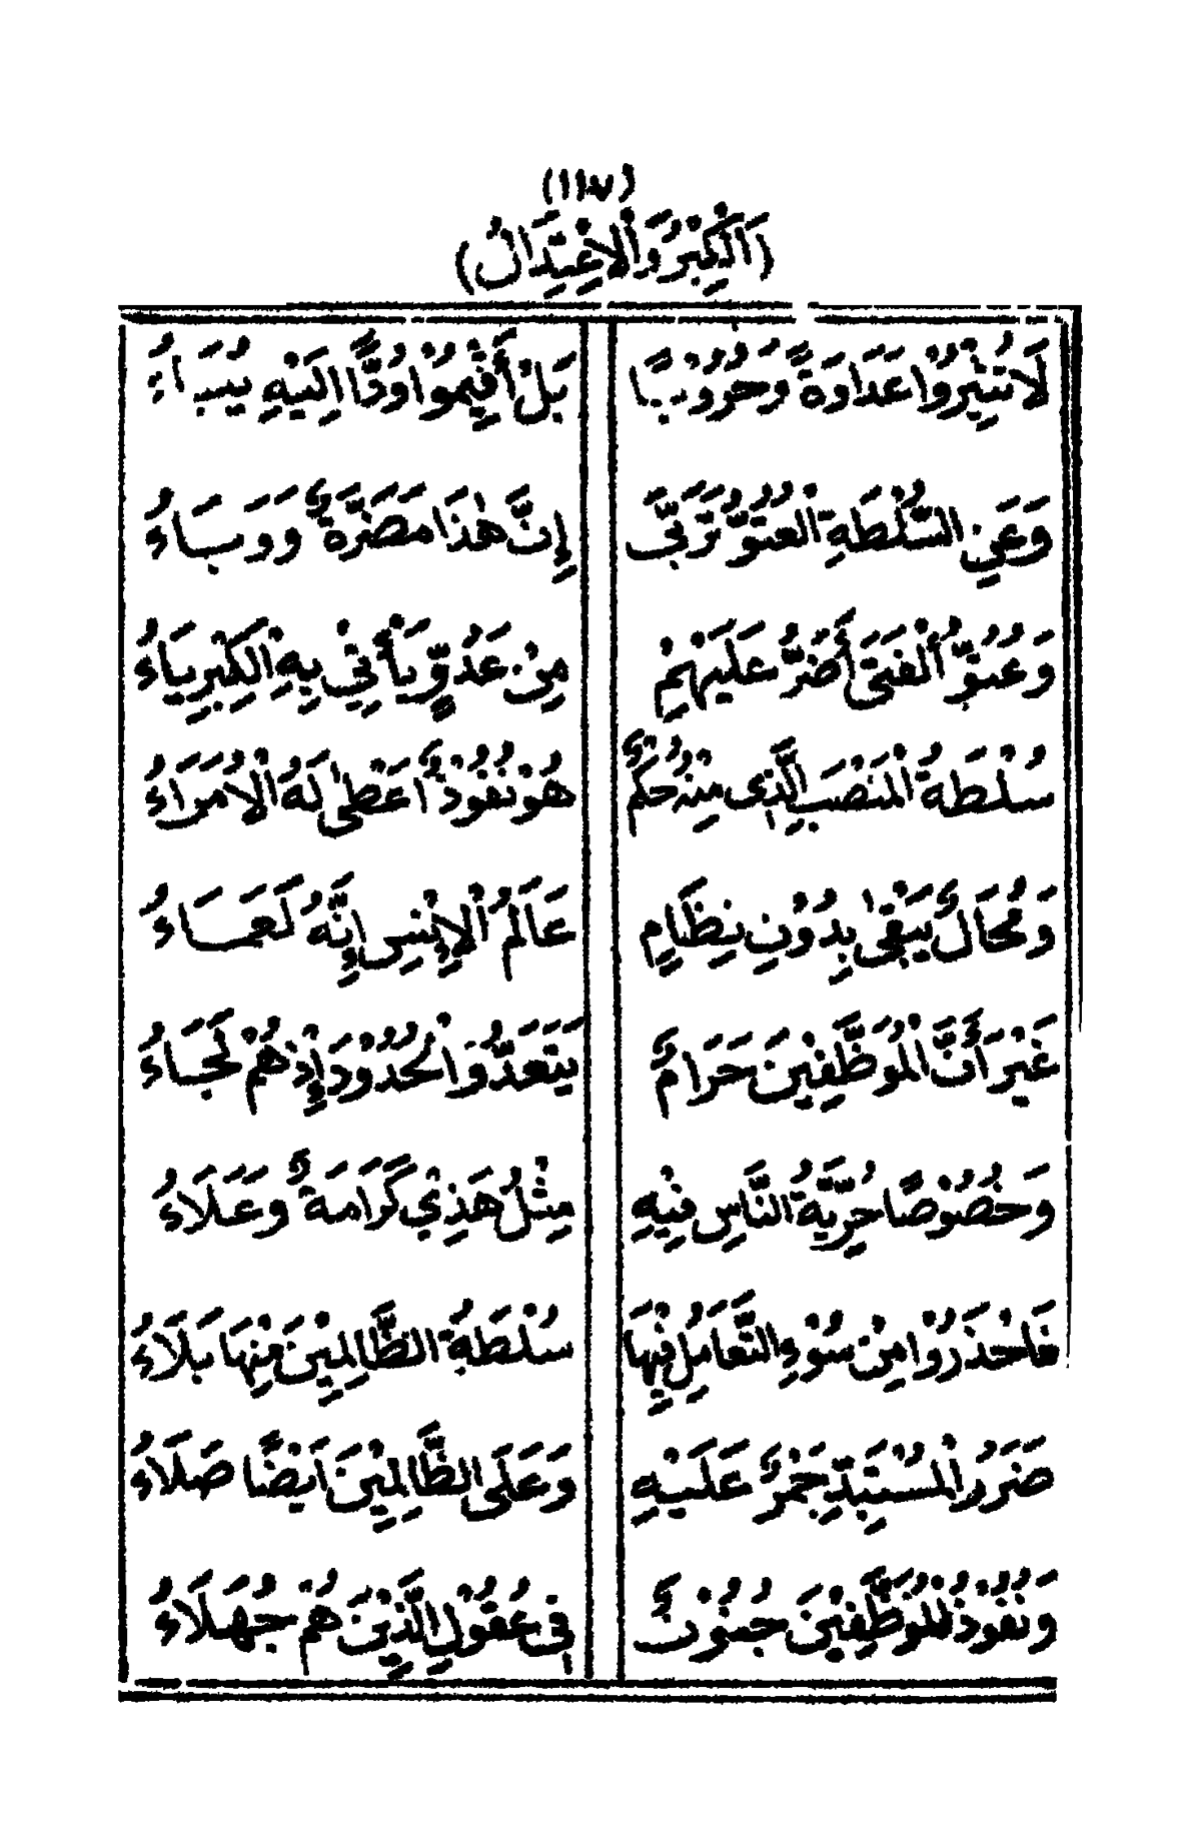 (١١٧)
(اَلْكِبْرُ وَالْاِعْتِدَالُ)
لَا تُثِيْرُوْا عَدَاوَةً وَحُرُوْبًا بَلْ أَقِيْمُوْا وُدًّا اِلَيْهِ يُبَاءُ
وَعَنِ السُّلْطَةِ الْعُتُوُّ تَرَبّٰى إِنَّ هٰذَا مَضَرَّةٌ وَوَبَاءُ
وَعُتُوُّ الْفَتٰى أَضَرُّ عَلَيْهِمْ مِنْ عَدُوٍّ يَأْتِيْ بِهِ الْكِبْرِيَاءُ
سُلْطَةُ الْمَنْصَبِ الَّذِى مِنْهُ حُكْمٌ هُوَ نُفُوْذٌ اَعْطٰى لَهُ الْاُمَرَاءُ
وَمُحَالٌ يَبْقٰى بِدُوْنِ نِظَامٍ عَالَمُ الْإِنْسِ إِنَّهُ لَعَمَاءُ
غَيْرَ أَنَّ الْمُوَظَّفِيْنَ حَرَامٌ يَتَعَدُّوا الْحُدُوْدَ إِذْ هُمْ لَجَاءُ
وَخُصُوْصًا حُرِّيَّةُ النَّاسِ فِيْهِ مِثْلُ هَذِيْ كَرَامَةٌ وَعَلَاءُ
فَاحْذَرُوْا مِنْ سُوْءِ التَّعَامُلِ فِيْهَا سُلْطَةُ الظَّالِمِيْنَ مِنْهَا بَلَاءُ
ضَرَرُ الْمُسْتَبِدِّ جَمْرٌ عَلَيْهِ وَعَلَى الظَّالِمِيْنَ اَيْضًا صَلَاءُ
وَنُفُوْذُ الْمُوَظَّفِيْنَ جُنُوْنٌ فِى عُقُوْلِ الَّذِيْنَ هُمْ جُهَلَاءُ